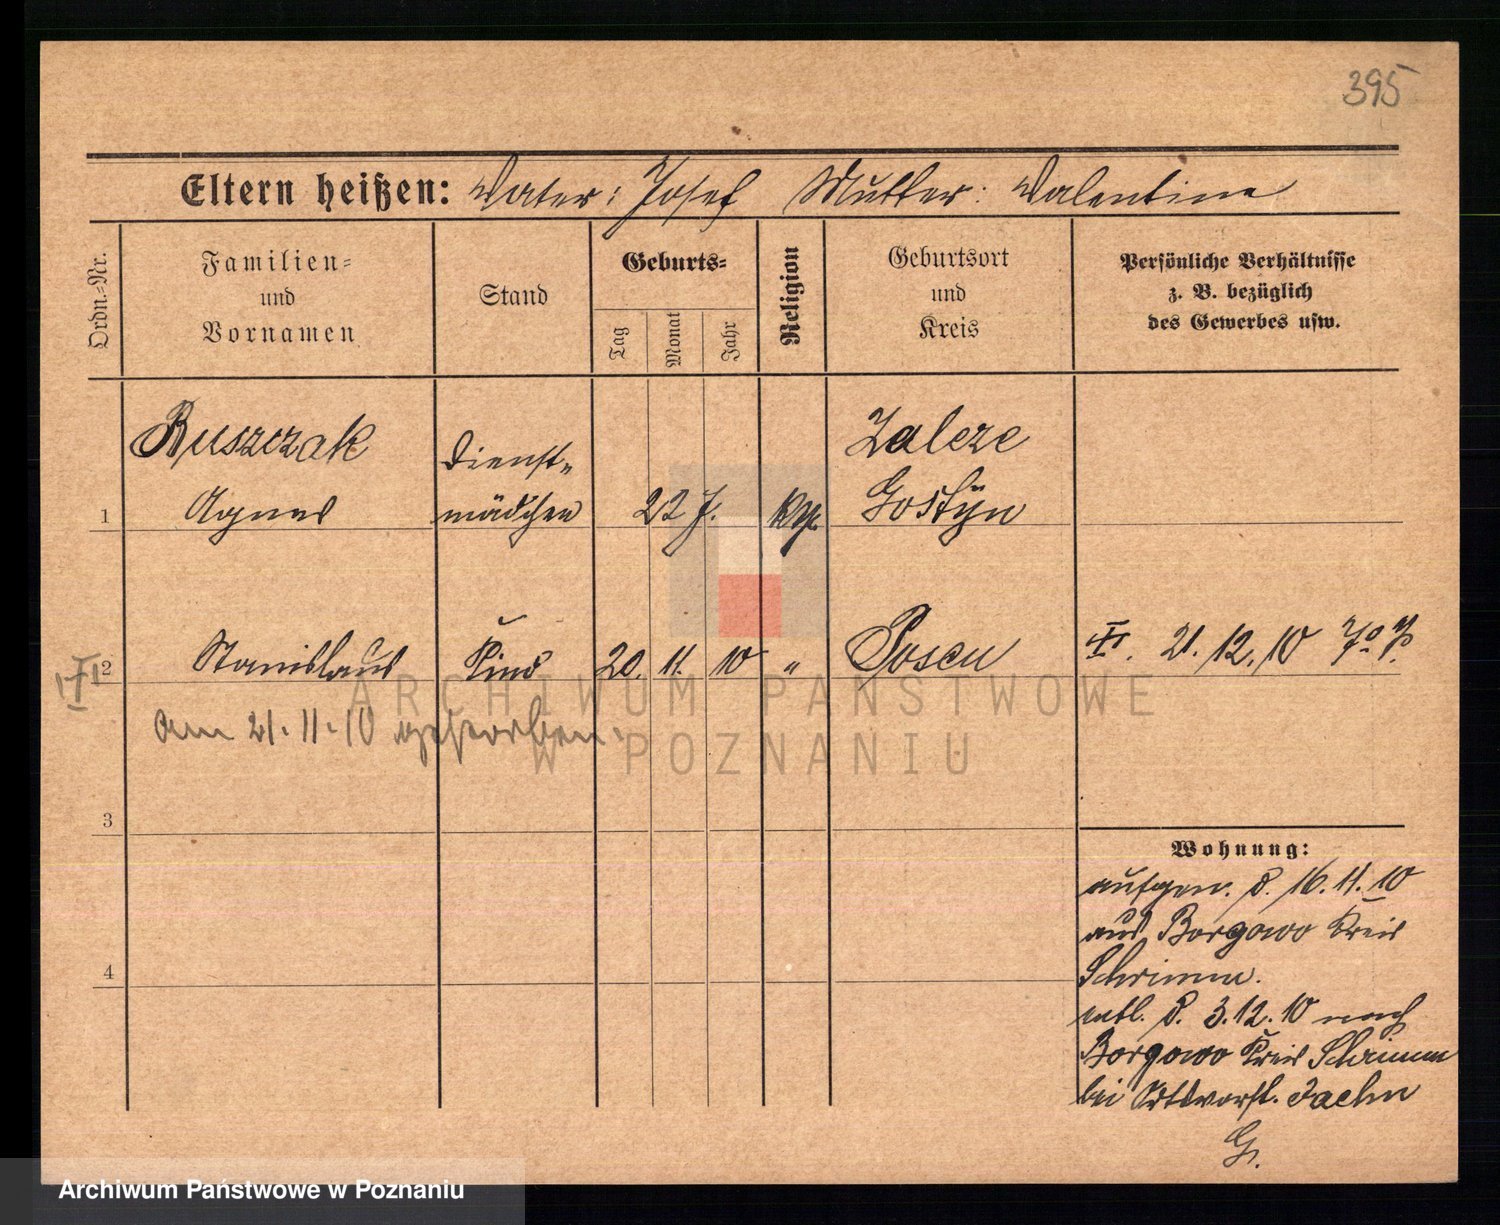 395
Eltern heißen: Vater: Josef Mutter: Valentine
Ordn.-Nr.
Familien-
und
Vornamen
Stand
Geburts-
Tag
Monat
Jahr
Religion
Geburtsort
und
Kreis
Persönliche Verhältnisse
z. B. bezüglich
des Gewerbes usw.
Ruszczak
Agnes
Dienst-
mädchen
22 J.
Zaleze
Gostÿn
1
2
Stanislaus
Kind
20. 11. 10
"
Posen
21. 12. 10
am 21. 11. 10 gestorben.
3
4
Wohnung:
aufgen. d. 16. 11. 10
aus Borgowo Kreis
Schrimm.
entl. d. 3. 12. 10 nach
Borgowo Kreis Schrimm
bei Ortsvorst. Jaehn
G.
ARCHIWUM PAŃSTWOWE
W POZNANIU
Archiwum Państwowe w Poznaniu